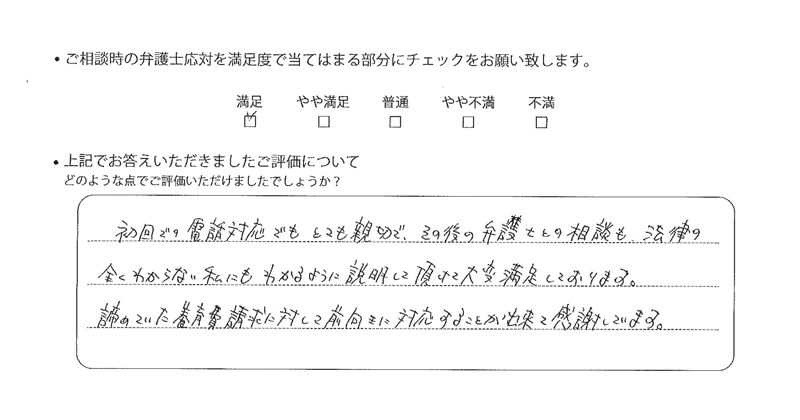 ・ご相談時の弁護士応対を満足度で当てはまる部分にチェックをお願い致します。
満足 やや満足 普通 やや不満 不満
☑ □ □ □ □
・上記でお答えいただきましたご評価について
どのような点でご評価いただけましたでしょうか？
初回での電話対応でもとても親切で、その後の弁護士との相談も、法律の
全くわからない私にもわかるように説明して頂けて大変満足しております。
諦めていた養育費請求に対して前向きに対応することが出来て感謝しています。